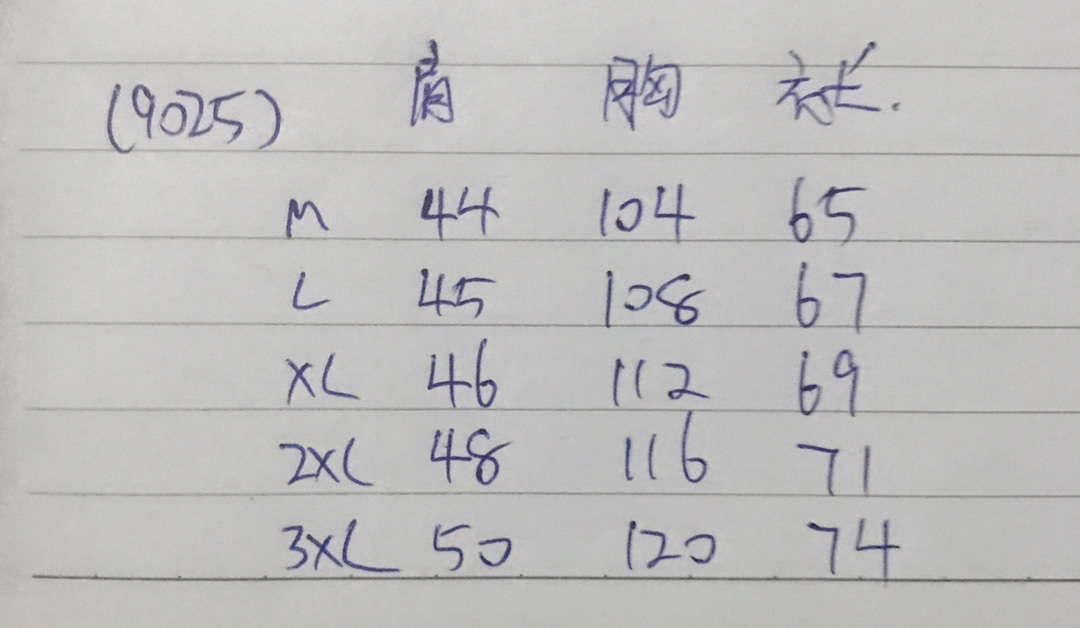 (9025) 肩 胸 衣长.
M 44 104 65
L 45 108 67
XL 46 112 69
2XL 48 116 71
3XL 50 120 74